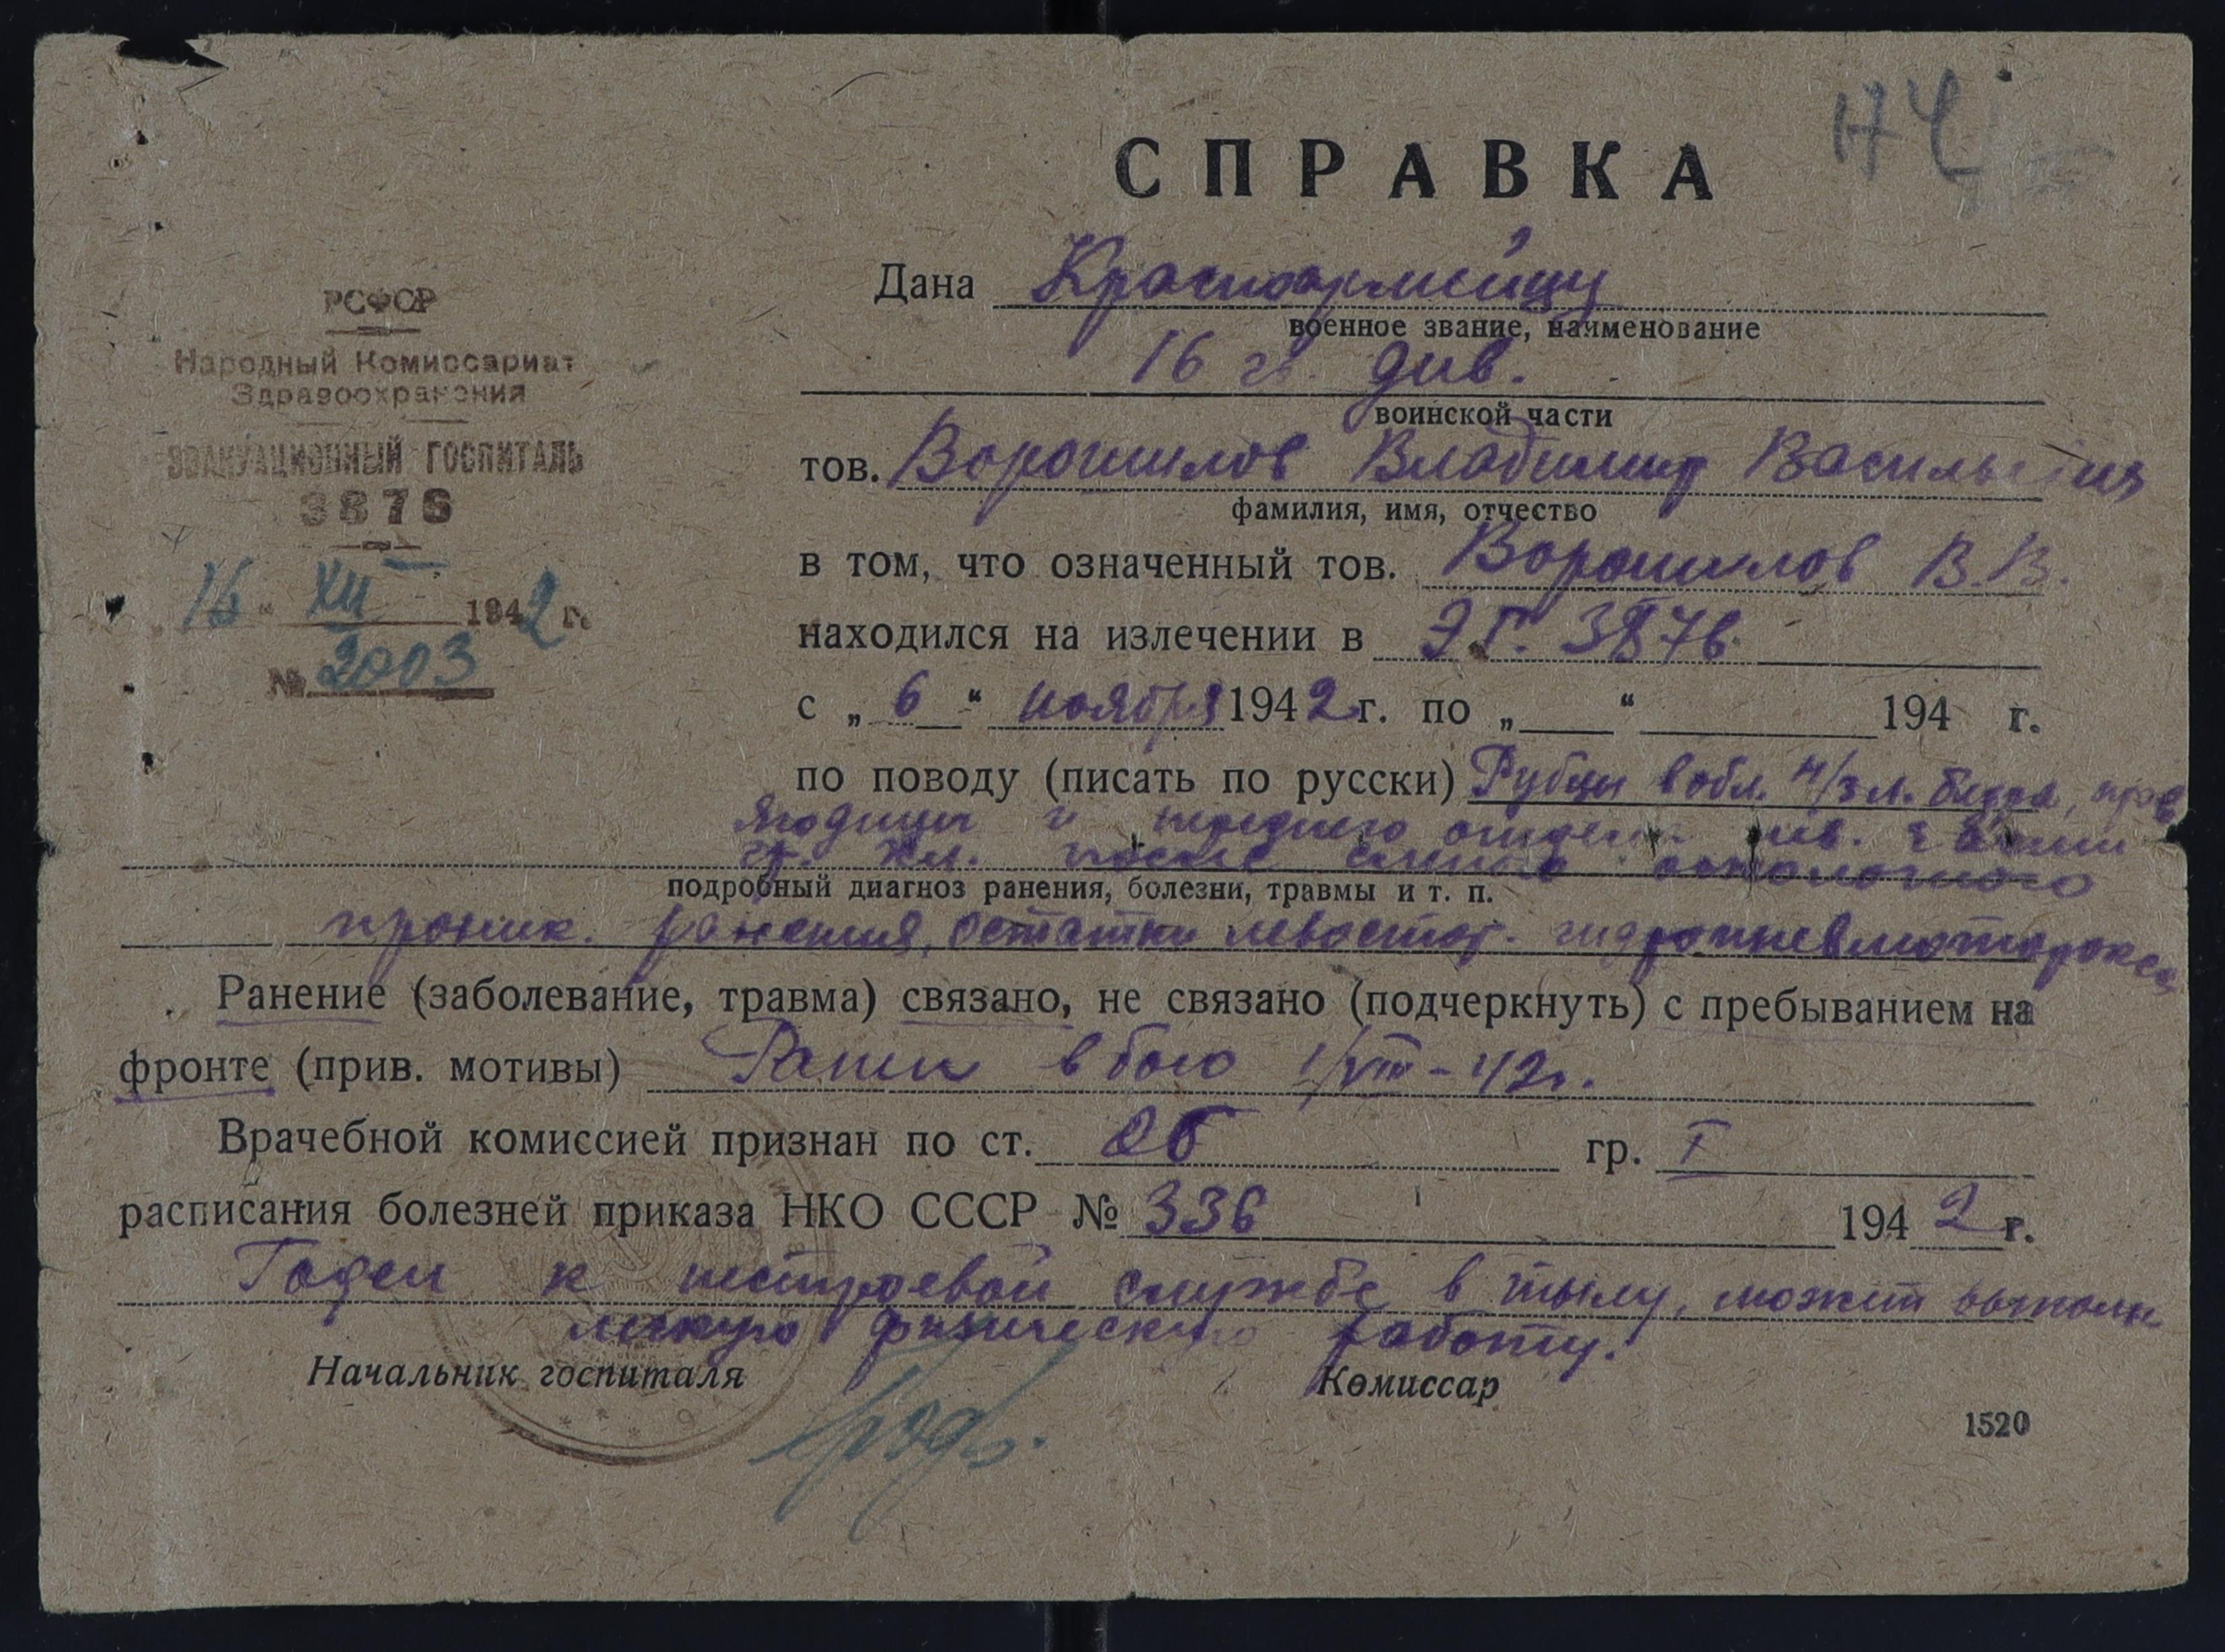 СПРАВКА
РСФСР
Народный Комиссариат
Здравоохранения
ЭВАКУАЦИОННЫЙ ГОСПИТАЛЬ
3876
16 " XII 1942 г.
№ 2003
Дана Красноармейцу
военное звание, наименование
16 гв. див.
воинской части
тов. Ворошилов Владимир Васильевич
фамилия, имя, отчество
в том, что означенный тов. Ворошилов В.В.
находился на излечении в Э.Г. 3876.
с „ 6 “ ноября 1942 г. по „ “ 194 г.
по поводу (писать по русски) Рубцы в обл. н/з л. бедра, прав
ягодицы и переднего лев.
гр. кл. после слепого осколочного
подробный диагноз ранения, болезни, травмы и т. п.
проник. ранения, остатки левостор. гидропневмоторокса
Ранение (заболевание, травма) связано, не связано (подчеркнуть) с пребыванием на
фронте (прив. мотивы) Ранен в бою 1/VIII-42г.
Врачебной комиссией признан по ст. гр. I
расписания болезней приказа НКО СССР № 336 1942 г.
Годен к нестроевой службе в тылу, может выполн
легкую физическую работу.
Начальник госпиталя Комиссар
1520